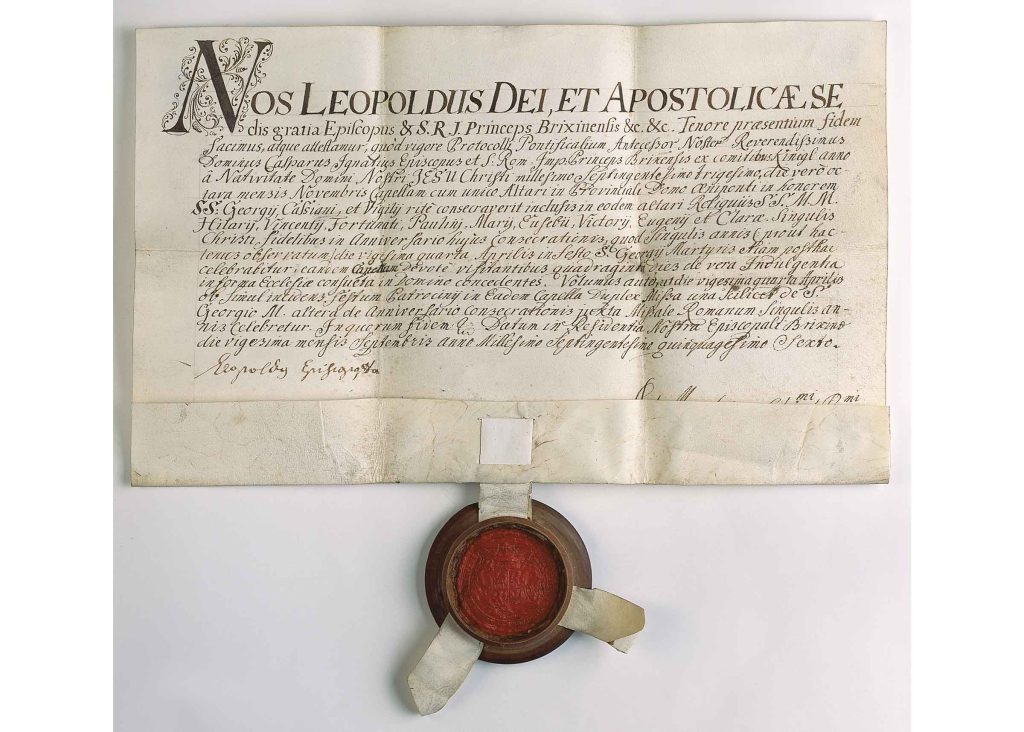 NOS LEOPOLDUS DEI, ET APOSTOLICÆ SE
dis gratia Episcopus & S. R. J. Princeps Brixinensis &c. &c. Tenore præsentium fidem
facimus, atque attestamur, quod vigore Protocolli Pontificalium Antecessor Noster Reverendissimus
Dominus Casparus Ignatius Episcopus et S. Rom. Imp. Princeps Brixinensis ex comitibus Kinegl anno
à Nativitate Domini Nostri JESU Christi millesimo Septingentesimo trigesimo, die verò oc
tava mensis Novembris Capellam cum unico Altari in Provinciali Domo Œniponti in honorem
SS: Georgij, Cassiani, et Vigilij ritè consecraverit inclusis in eodem altari Reliquiis SS. M. M.
Hilarij, Vincentij, Fortunati, Paulini, Mary, Eusebij, Victorij, Eugenij et Claræ. Singulis
Christi fidelibus in Anniversario hujus Consecrationis, quod singulis annis (prout hac
tenus observatum) die vigesima quarta Aprilis in Festo S. Georgij Martyris etiam posthac
celebrabitur, eandem Capellam devotè visitantibus quadraginta dies de vera Indulgentia
in forma Ecclesiæ consueta in Domino concedentes. Volumus autem, ut die vigesima quarta Aprilis
ob simul incidens Festum Patrocinij in Eadem Capella Duplex Missa una Scilicet de S.
Georgio M. altera de Anniversario Consecrationis juxta Missale Romanum Singulis an-
nis celebretur. In quorum fidem &c. Datum in Residentia Nostra Episcopali Brixinæ
die vigesima mensis Septembris anno Millesimo Septingentesimo quinquagesimo Sexto.
Leopoldus Episcopus